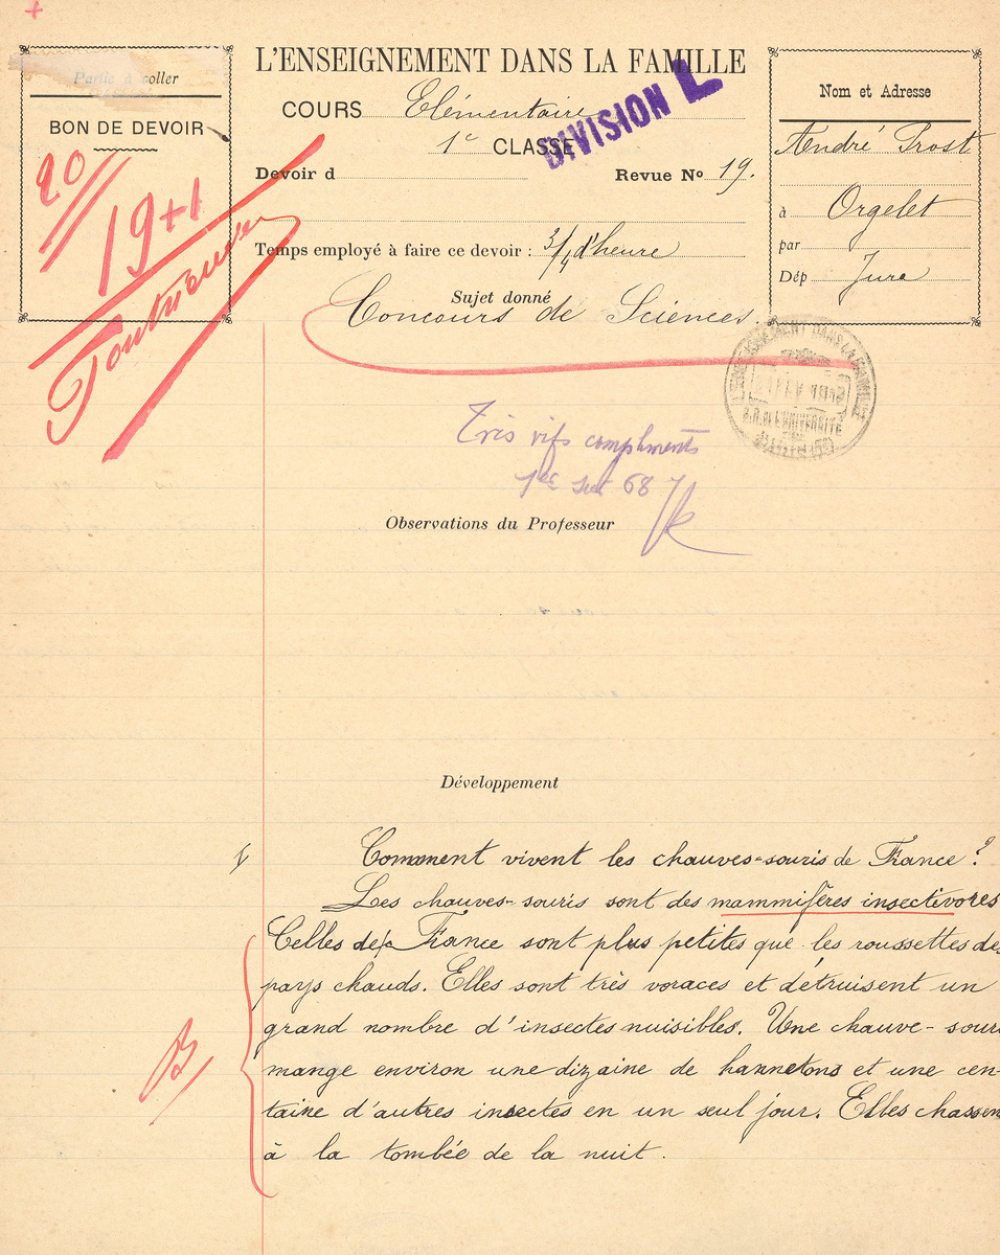 Partie à coller
BON DE DEVOIR
20
19+1
L'ENSEIGNEMENT DANS LA FAMILLE
COURS Elémentaire
1e CLASSE
DIVISION L
Devoir d
Revue No 19.
Temps employé à faire ce devoir : 3/4 d'heure
Sujet donné
Concours de Sciences.
Nom et Adresse
André Prost
à Orgelet
par
Dép Jura
Très vifs compliments
1er sur 68
Observations du Professeur
Développement
Comment vivent les chauves-souris de France ?
Les chauves-souris sont des mammifères insectivores
Celles de France sont plus petites que les roussettes des
pays chauds. Elles sont très voraces et détruisent un
grand nombre d'insectes nuisibles. Une chauve-souri
mange environ une dizaine de hannetons et une cen-
taine d'autres insectes en un seul jour. Elles chassen
à la tombée de la nuit.
B